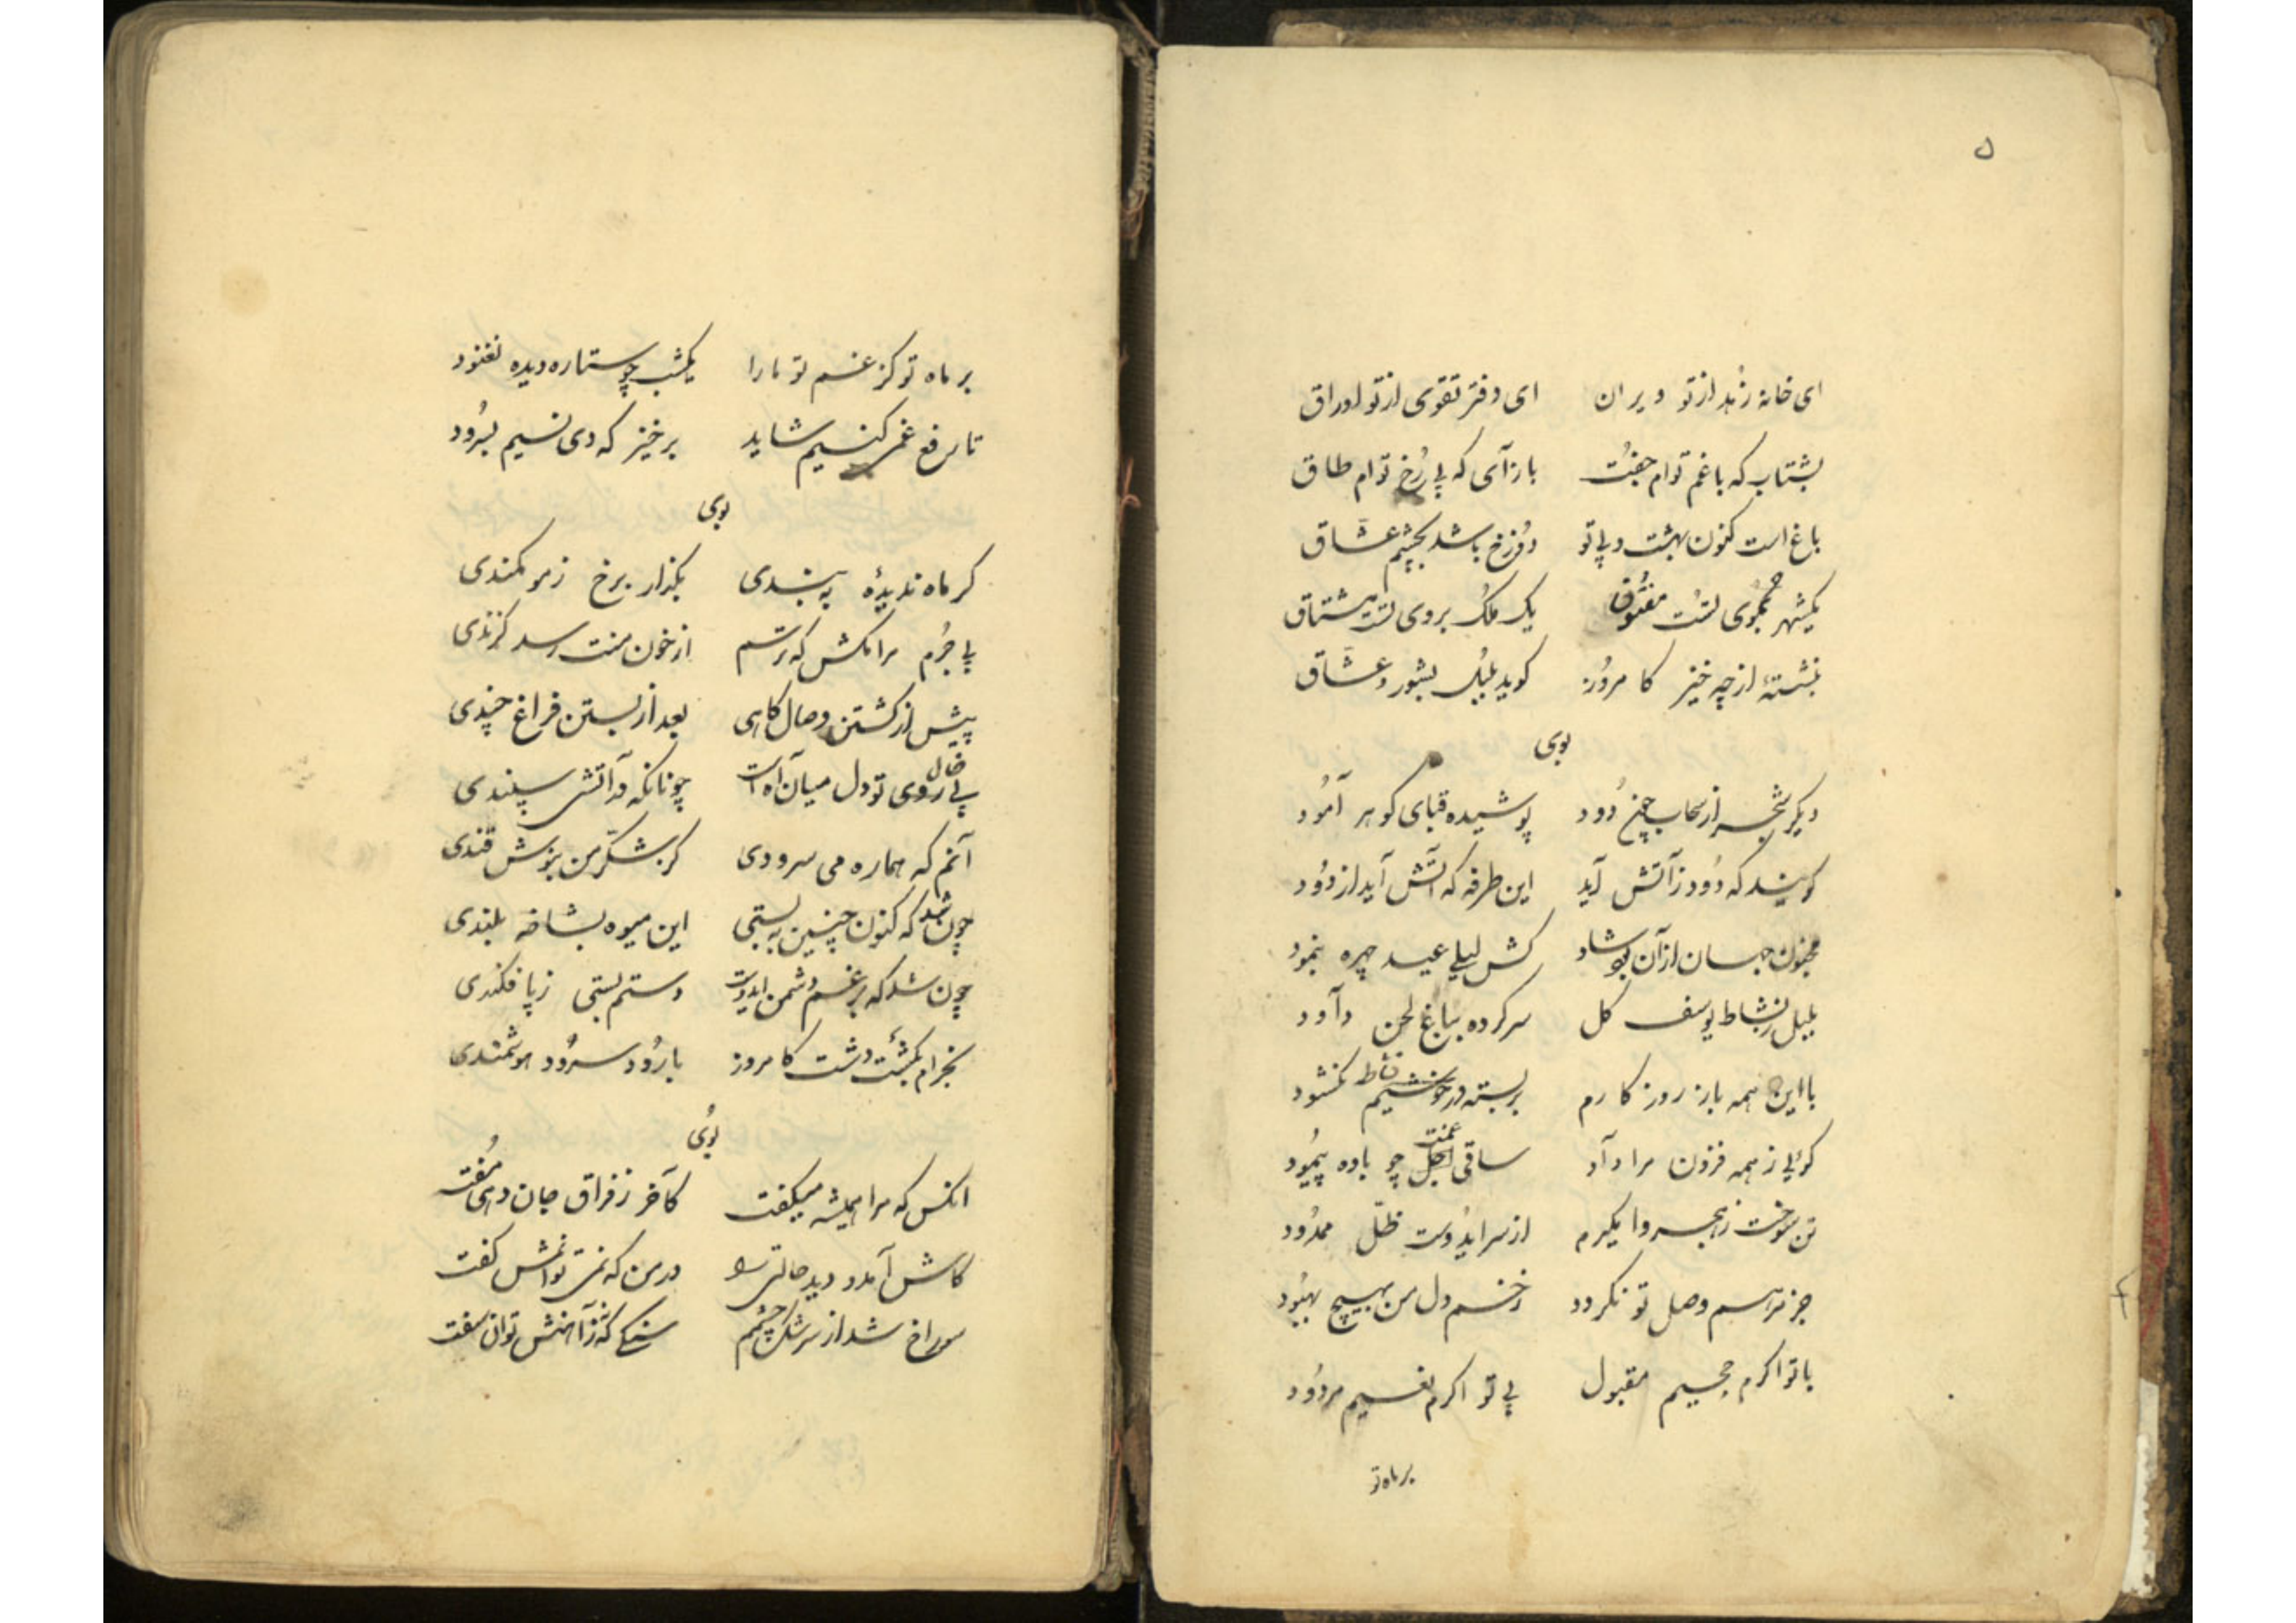 ۵
ای خانهٔ زُهد از تو ویران ای دفتر تقوی از تو اوراق
بشتاب که با غم توام جفت باز آی که بی رُخ توام طاق
باغ است کنون بهشت و بی تو دوزخ باشد بچشم عشّاق
یکشهر بموی تست مفتوق یک ملک بروی تست مشتاق
بنشستهٔ از چه خیز کامروز کوید بلبل بشور و عشّاق
دیکر شجر از سحاب چون دود پوشیده قبای کوهر آمود
کویند که دود ز آتش آید این طرفه که آتش آید از دود
مجنون جهان از آن بود شاد کش لیلی عید چهره بنمود
بلبل ز نشاط یوسف کل سر کرده بباغ لحن داود
با این همه باز روزکارم بر بسته در نشاط نکشود
کوئی ز همه فزون مرا داد ساقی غمت چو باده پیمود
تن سوخت ز هجر وا مکیرم از سر ایدوست ظلّ ممدود
جز مرهم وصل تو نکردد زخم دل من بهیچ بهبود
با تو اکرم جحیم مقبول بی تو اکرم نعیم مردود
بر ماه تو
بر ماه تو کز غم تو ما را یکشب چو ستاره دیده نغنود
تا رفع غمی کنیم شاید برخیز که دی نسیم بسرود
کر ماه ندیدهٔ به بندی بکذار برخ ز مو کمندی
بی جُرم مرا مکش که ترسم از خون منت رسد کزندی
پیش از کشتن وصال کاهی بعد از بستن فراغ چندی
بی خال روی تو دل میان آه است چونانکه در آتشی سپندی
آنم که هماره می سرودی کز شکّر من بنوش قندی
چون شد که کنون چنین به پستی این میوه بشاخهٔ بلندی
چون شد که برغم دشمن ایدوست دستم بستی ز پا فکندی
بخرام بکشت دشت کامروز با رود سرود هوشمندی
انکس که مرا همیشه میکفت کآخر ز فراق جان دهی مفت
کاش آمد و دید حالتی در من که نمی توانمش کفت
سوراخ شد از سرشک چشمم سنکی که ز آهنش توان سفت